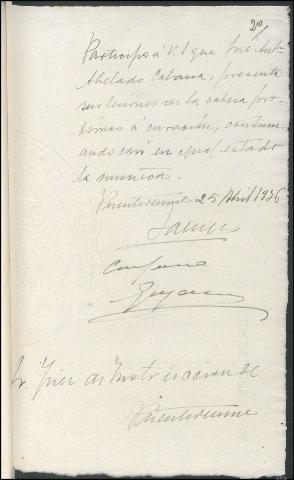 Participo á V.I que José Ant.
Abelado Cabana, presenta
sus lesiones en la cabeza pro-
ximas á curación, continu-
ando casi en igual estado
la muñeca.
Puentedeume 25 Abril 1936
Conforme
Sr. Juez de Instrucción de
Puentedeume